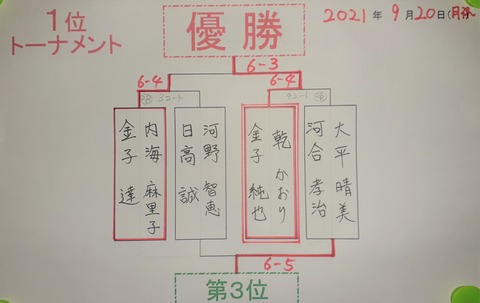 1位
トーナメント
優勝
2021年 9月20日(月・休)
6-3
6-4
6-4
3コート
内海 麻里子
金子 達
河野 智恵
日高 誠
乾 かおり
金子 純也
大平 晴美
河合 孝治
6-5
第3位